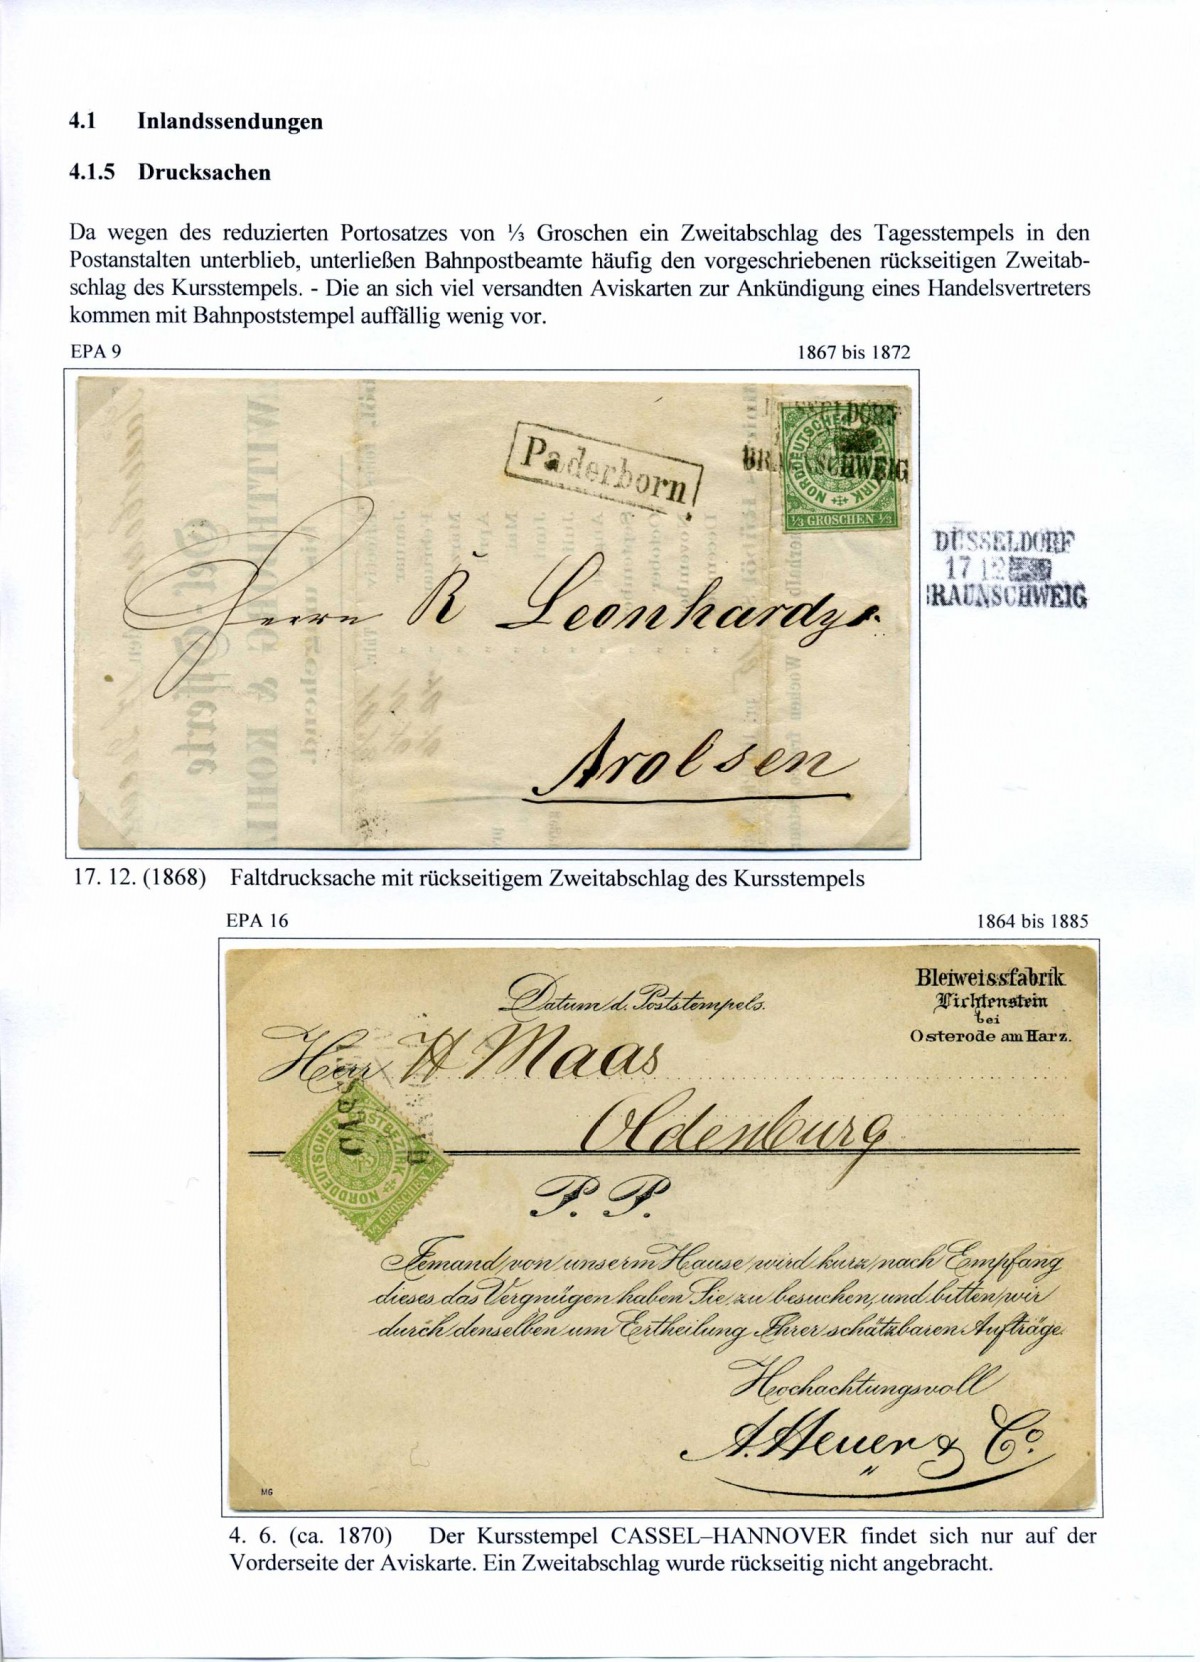 4.1 Inlandssendungen
4.1.5 Drucksachen
Da wegen des reduzierten Portosatzes von ⅓ Groschen ein Zweitabschlag des Tagesstempels in den
Postanstalten unterblieb, unterließen Bahnpostbeamte häufig den vorgeschriebenen rückseitigen Zweitab-
schlag des Kursstempels. - Die an sich viel versandten Aviskarten zur Ankündigung eines Handelsvertreters
kommen mit Bahnpoststempel auffällig wenig vor.
EPA 9 1867 bis 1872
DÜSSELDORF
BRAUNSCHWEIG
Paderborn
NORDDEUTSCHER POSTBEZIRK
⅓ GROSCHEN ⅓
Herrn R Leonhardy
Arolsen
DÜSSELDORF
17 12
BRAUNSCHWEIG
17. 12. (1868) Faltdrucksache mit rückseitigem Zweitabschlag des Kursstempels
EPA 16 1864 bis 1885
Bleiweissfabrik
Lichtenstein
bei
Osterode am Harz.
Datum d. Poststempels.
Herr H Maas
Oldenburg
CASS
NORDDEUTSCHER POSTBEZIRK
⅓ GROSCHEN
P. P.
Jemand von unserm Hause wird kurz nach Empfang
dieses das Vergnügen haben Sie zu besuchen, und bitten wir
durch denselben um Ertheilung Ihrer schätzbaren Aufträge.
Hochachtungsvoll
A. Heuer & Co.
MG
4. 6. (ca. 1870) Der Kursstempel CASSEL–HANNOVER findet sich nur auf der
Vorderseite der Aviskarte. Ein Zweitabschlag wurde rückseitig nicht angebracht.